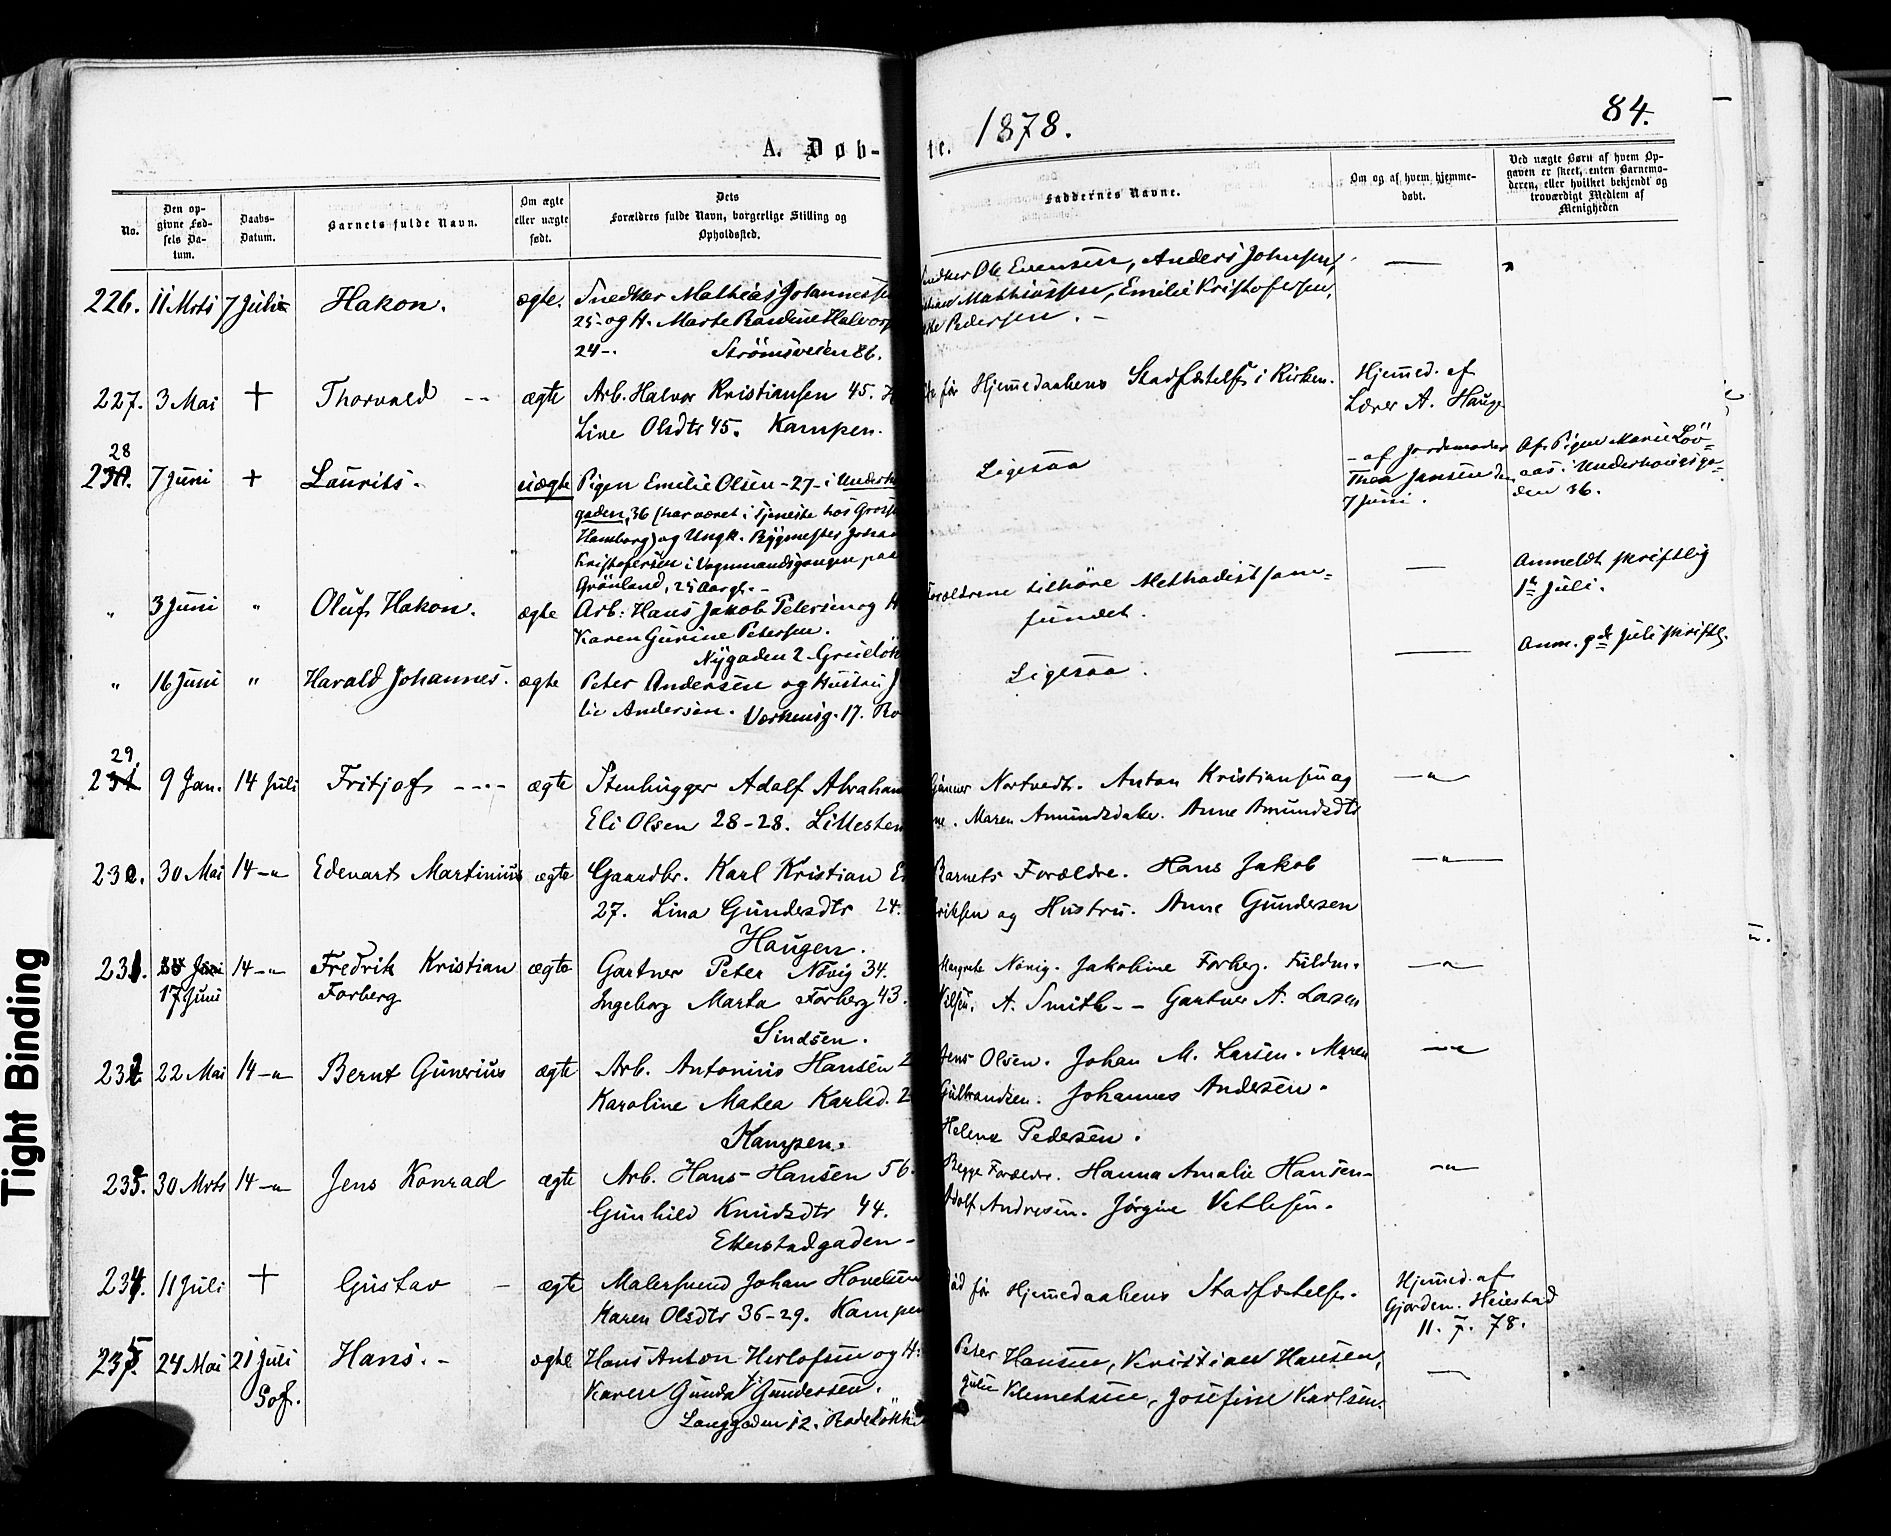 1878.
84.
A. Døb-
te.
No.
Den op-
givne Fød-
sels Da-
tum.
Daabs-
Datum.
Barnets fulde Navn.
Om ægte
eller uægte
født.
Dets
Forældres fulde Navn, borgerlige Stilling og
Opholdssted.
Faddernes Navne.
Om og af hvem hjemme-
døbt.
Ved uægte Børn af hvem Op-
gaven er skeet, enten Barnemo-
deren, eller hvilket bekjendt og
troværdigt Medlem af
Menigheden
226. 11 Mrts 7 Juli Hakon. ægte. Snedker Mathias Johannesse
25- og H. Marte Halvors
24-. Strømsveien 86.
Ole Evensen, Anders Johnsen,
Mathiassen, Emilie Kristofersen,
Pedersen. -
227. 3 Mai + Thorvald -- ægte Arb. Halvor Kristiansen 45. H
Line Olsdtr 45. Kampen.
før Hjemmedaabens Stadfæstelse i Kirken.
Hjemmed. af
Lærer A. Hauge
28
230. 7 Juni + Laurits. uægte Pigen Emilie Olsen -27- i Underh
gaden, 36 (har været i Tjeneste hos Gross
Hamborg) og Ungk. Bygmester Johan
Kristofersen i Vognmandsgangen paa
Grønland, 25 Aar gl. -
Ligesaa
- af Jordemoder
Thea Jansen den
7 Juni.
Af Pigen Marie Löv=
aas i Underhaugsga=
den 36.
" 3 Juni " Oluf Hakon. ægte Arb: Hans Jakob Petersen og H
Karen Gurine Petersen.
Nygaden 2 Grünelök
Forældrene tilhöre Methodistsam=
fundet.
Anmeldt skriftlig
1ste Juli.
" 16 Juni " Harald Johannes. ægte Peter Andersen og Hustru J
lie Andersen. Verkensg. 17. Ro
Ligesaa.
Anm. 9de Juli skriftl.
29.
231 9 Jan. 14 Juli Fritjof ---- ægte Stenhugger Adolf Abraham
Eli Olsen 28-28. Lillesten
Gunner Nortvedt. Anton Kristiansen og
ne. Maren Amundsdatr. Anne Amundsdtr
—"—
230. 30 Mai 14 -"- Edevart Martinius ægte Gaardbr. Karl Kristian E
27. Lina Gundersdtr 24.
Haugen.
Barnets Forældre. Hans Jakob
riksen og Hustru. Anne Gundersen
—"—
231. Juni 14 -"- Fredrik Kristian ægte Gartner Peter Növig 34.
17 Juni Forberg Ingeborg Marta Forberg 43.
Sinsen.
Margrete Növig. Jakobine Forberg. Fuldm.
Nilsen. A. Smith -- Gartner A. Lasen
—"—
232 22 Mai 14 -"- Bernt Gunerius ægte Arb. Antonius Hansen 2
Karoline Matea Karlsd. 2
Kampen.
Jens Olsen. Johan M. Larsen. Maren
Gulbrandsen. Johannes Andersen.
Helene Pedersen.
—"—
233. 30 Mrts 14 -"- Jens Konrad ægte Arb. Hans Hansen 56.
Gunhild Knudsdtr 44.
Ekerstadgaden -
Begge Forældre. Hanna Amalie Hansen-
Adolf Andresen. Jørgine Vetlesen.
—"—
234. 11 Juli + Gustav - ægte Malersvend Johan Hovelsen
Karen Olsdtr 36-29. Kampen
Död før Hjemmedaabens Stadfæstelse.
Hjemmed. af
Gjordem. Heiestad
11. 7. 78.
235. 24 Mai 21 Juli Hans. - ægte Hans Anton Herlofsen og H.
Gof. Karen Gunda Gundersen.
Langgaden 12. Rodeløkk
Peter Hansen, Kristian Hansen,
Julie Klemetsen, Josefine Karlsen.
Tight Binding